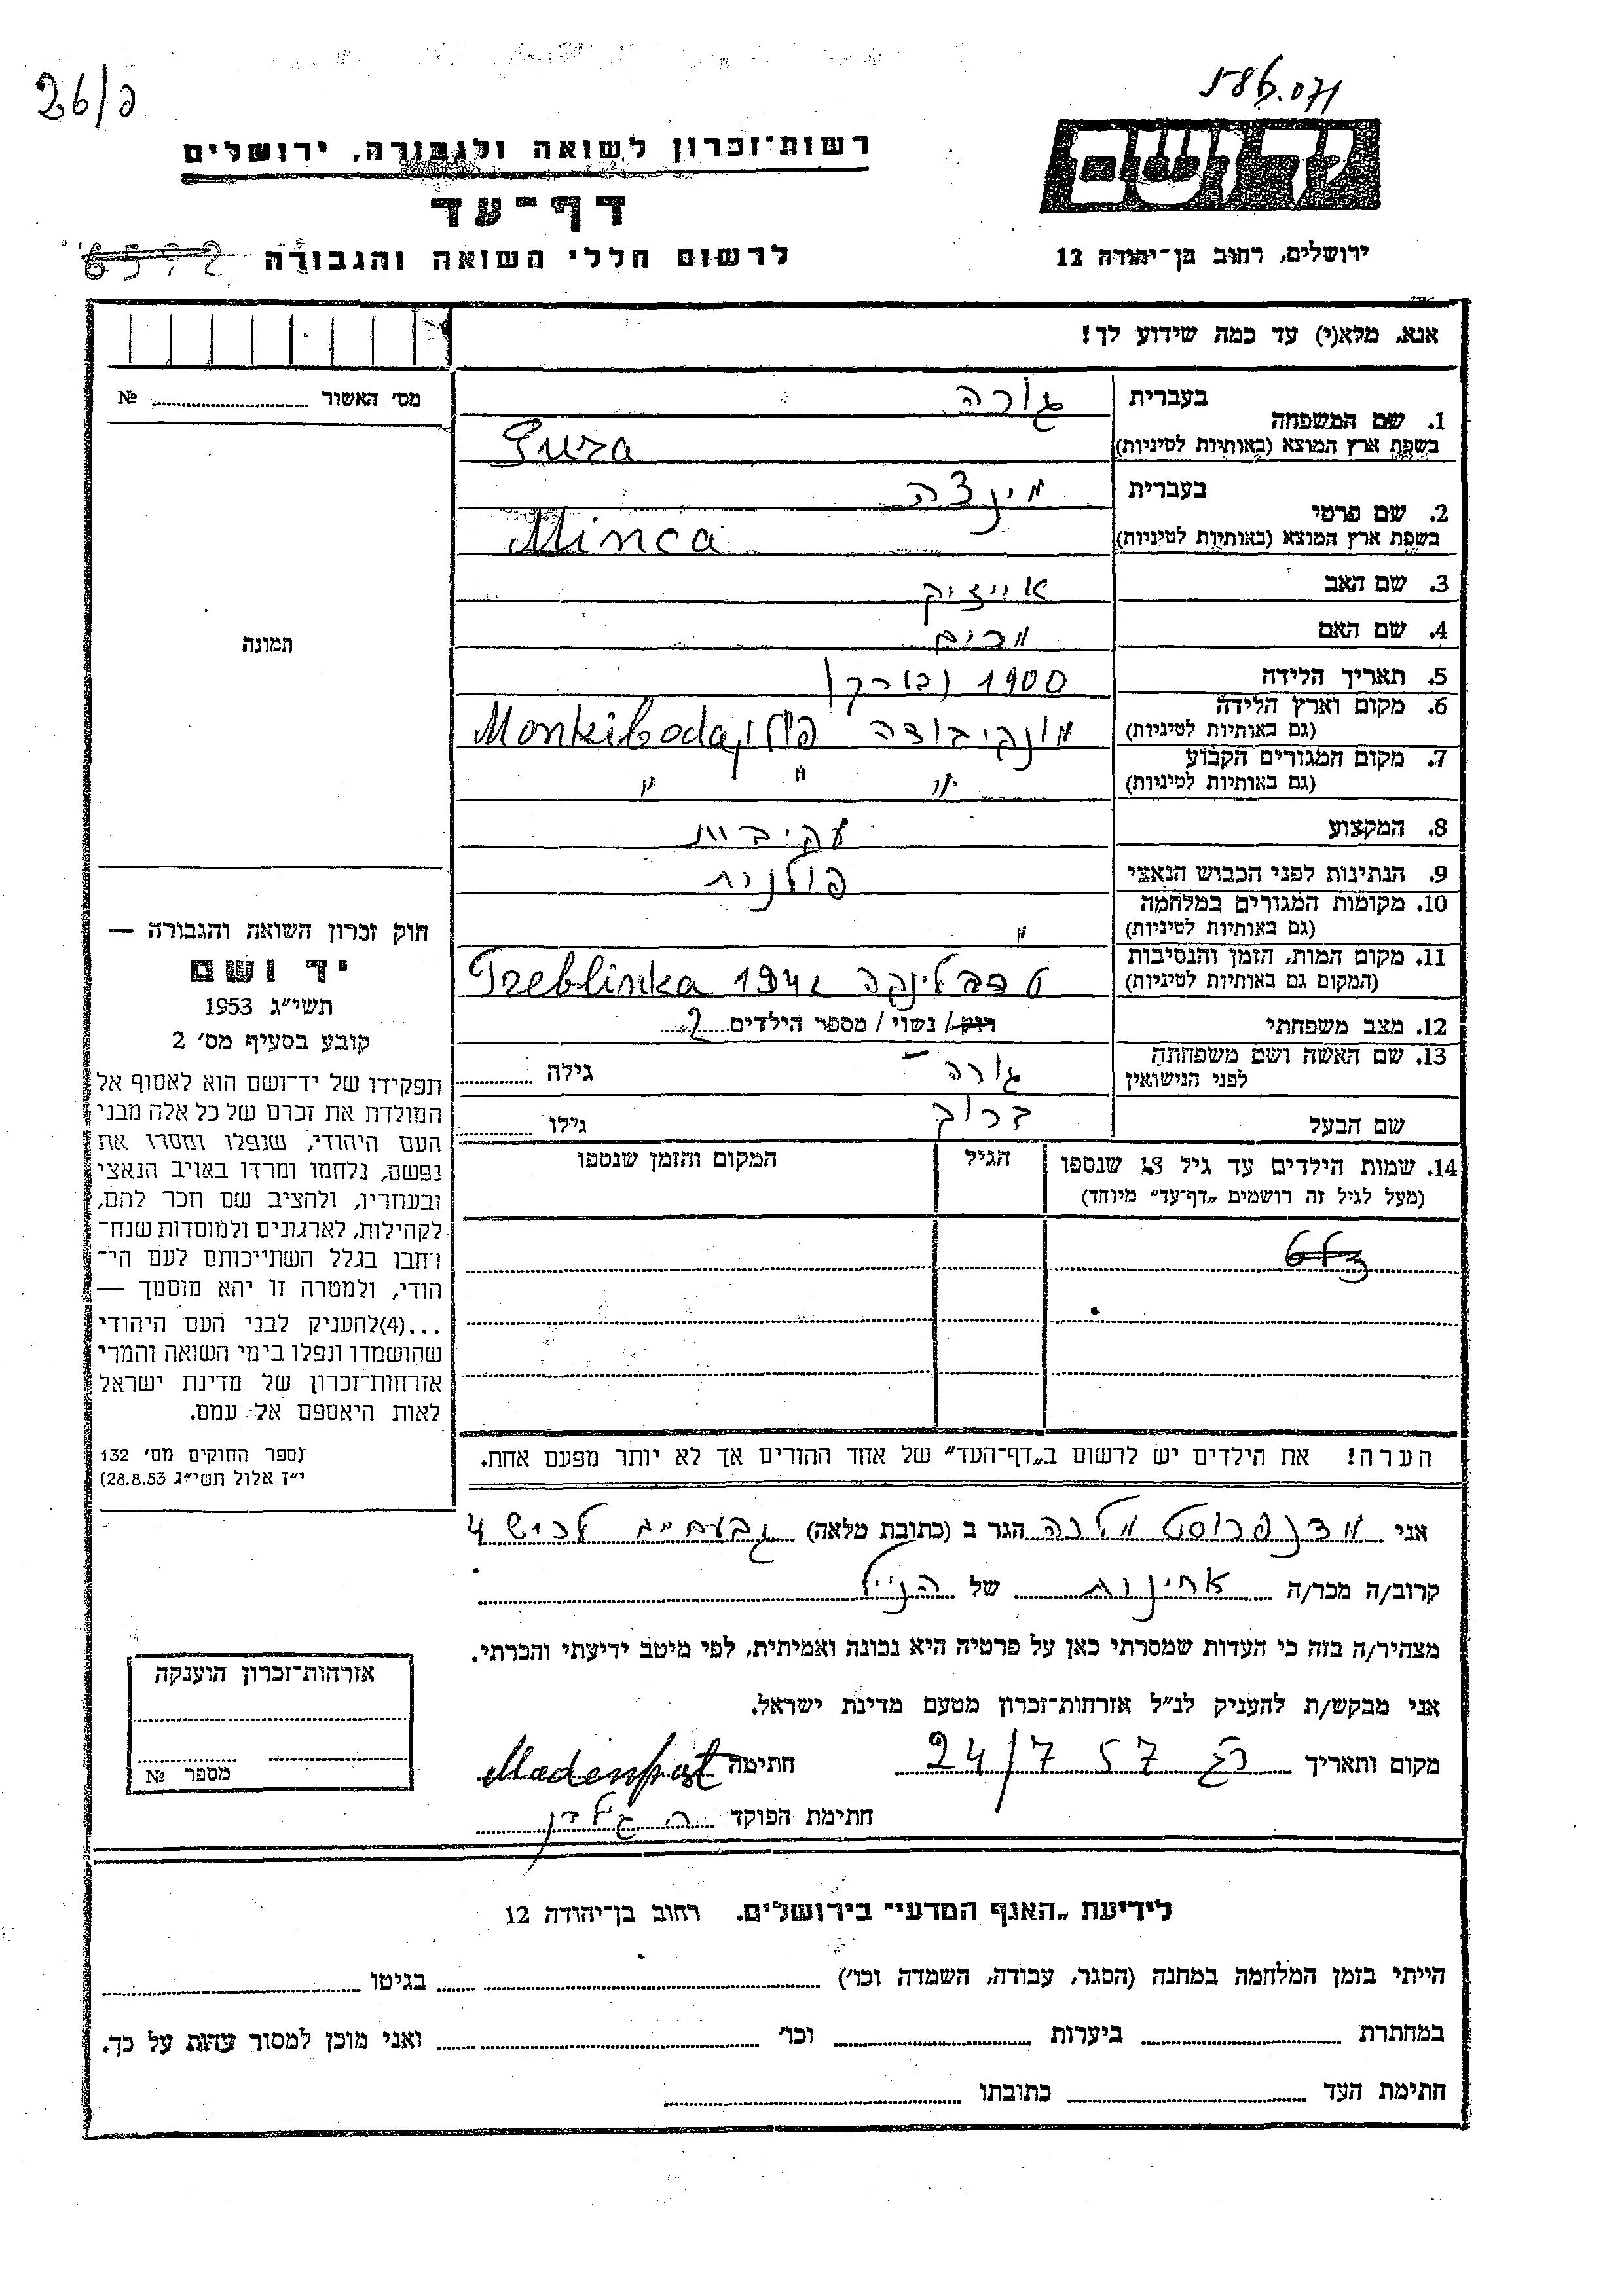 586.071
26/ג
רשות־זכרון לשואה ולגבורה, ירושלים
דף־עד
לרשום חללי השואה והגבורה
6592
יד ושם
ירושלים, רחוב בן־יהודה 12
אנא, מלא(י) עד כמה שידוע לך!
מס׳ האשור № 
1. שם המשפחה
בעברית גורה
בשפת ארץ המוצא (באותיות לטיניות) Gura
2. שם פרטי
בעברית מינצה
בשפת ארץ המוצא (באותיות לטיניות) Minca
3. שם האב אייזיק
4. שם האם מרים
5. תאריך הלידה 1900 (בערך)
6. מקום וארץ הלידה
(גם באותיות לטיניות) מונקיבודה פולין Monkiboda
7. מקום המגורים הקבוע
(גם באותיות לטיניות) " " "
8. המקצוע עק׳ בית
9. הנתינות לפני הכבוש הנאצי פולנית
10. מקומות המגורים במלחמה
(גם באותיות לטיניות) "
11. מקום המות, הזמן והנסיבות
(המקום גם באותיות לטיניות) טרבלינקה 1942 Treblinka
12. מצב משפחתי רווק / נשוי / מספר הילדים 2
13. שם האשה ושם משפחתה
לפני הנישואין גורה – גילה
שם הבעל ברוך גילו
14. שמות הילדים עד גיל 18 שנספו
(מעל לגיל זה רושמים „דף־עד״ מיוחד)
הגיל
המקום והזמן שנספו
הערה! את הילדים יש לרשום ב„דף־העד״ של אחד ההורים אך לא יותר מפעם אחת.
תמונה
חוק זכרון השואה והגבורה —
יד ושם
תשי״ג 1953
קובע בסעיף מס׳ 2
תפקידו של יד־ושם הוא לאסוף אל
המולדת את זכרם של כל אלה מבני
העם היהודי, שנפלו ומסרו את
נפשם, נלחמו ומרדו באויב הנאצי
ובעוזריו, ולהציב שם וזכר להם,
לקהילות, לארגונים ולמוסדות שנח־
רבו בגלל השתייכותם לעם הי־
הודי, ולמטרה זו יהא מוסמך —
...(4)להעניק לבני העם היהודי
שהושמדו ונפלו בימי השואה והמרי
אזרחות־זכרון של מדינת ישראל
לאות היאספם אל עמם.
(ספר החוקים מס׳ 132
י״ז אלול תשי״ג 28.8.53)
אני מדנפוסט מלכה הגר ב (כתובת מלאה) גבעתיים לכיש 4
קרוב/ה מכר/ה אחינות של הנ״ל
מצהיר/ה בזה כי העדות שמסרתי כאן על פרטיה היא נכונה ואמיתית, לפי מיטב ידיעתי והכרתי.
אני מבקש/ת להעניק לנ״ל אזרחות־זכרון מטעם מדינת ישראל.
מקום ותאריך רג 24/7 57 חתימה Madenpost
חתימת הפוקד
אזרחות־זכרון הוענקה
מספר №
לידיעת „האגף המדעי״ בירושלים. רחוב בן־יהודה 12
הייתי בזמן המלחמה במחנה (הסגר, עבודה, השמדה וכו׳) בגיטו
במחתרת ביערות וכו׳ ואני מוכן למסור עדות על כך.
חתימת העד כתובתו